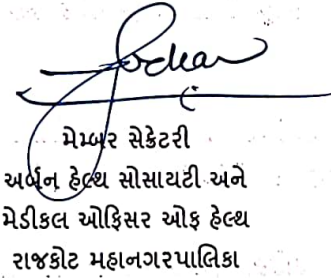 મેમ્બર સેક્રેટરી
અર્બન હેલ્થ સોસાયટી અને
મેડીકલ ઓફિસર ઓફ હેલ્થ
રાજકોટ મહાનગરપાલિકા